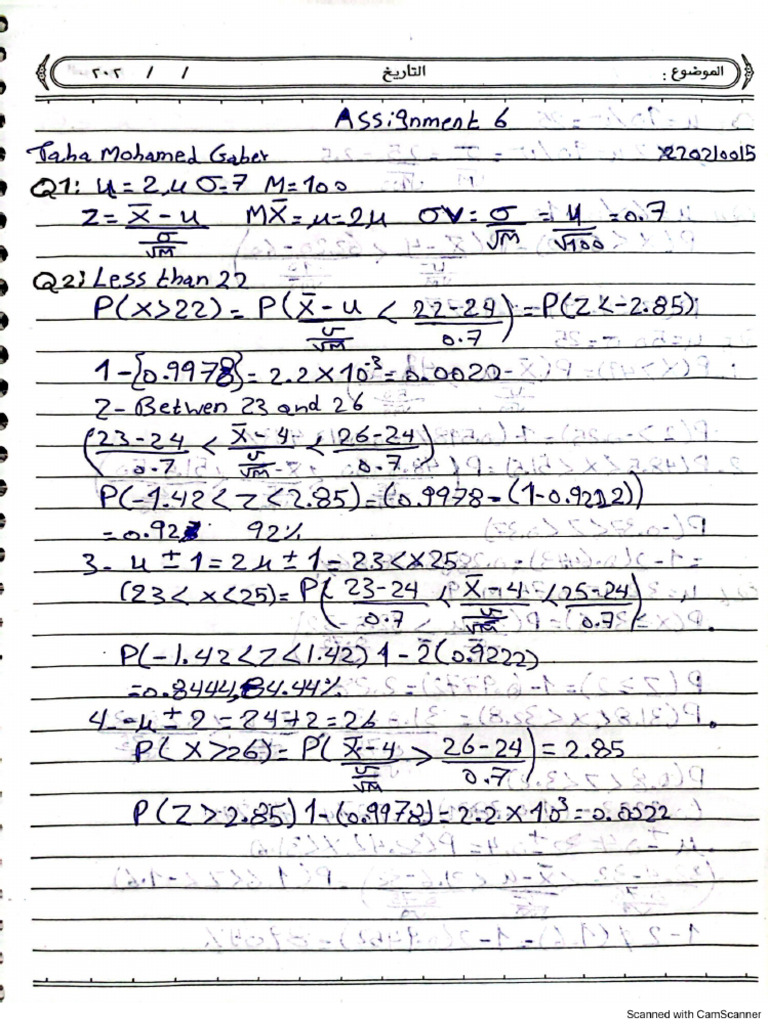 الموضوع : التاريخ / / ٢٠٢
Assignment 6
Taha Mohamed Gaber 220210015
Q1: μ = 2,μ σ=7 M=100
Z = (X̄ - μ)/(σ/√M) MX̄ = μ = 2μ σV = σ/√M = μ/√100 = 0.7
Q2: Less than 22
P(X>22) = P((X̄ - μ)/(σ/√M) < (22-24)/0.7) = P(Z<-2.85)
1-{0.9978} = 2.2×10⁻³ = 0.0020
2- Betwen 23 and 26
((23-24)/0.7 < (X̄-4)/(σ/√M) < (26-24)/0.7)
P(-1.42 < Z < 2.85) = (0.9978 - (1-0.9212))
= 0.92 92%
3- μ ± 1 = 2μ ± 1 = 23<×25
(23< x <25) = P((23-24)/0.7 < (X̄-4)/(σ/√M) < (25-24)/0.7)
P(-1.42 < Z < 1.42) 1-2(0.9222)
= 0.8444, 84.44%
4- μ ± 2 = 24+2 = 26
P(X>26) = P((X̄-4)/(σ/√M) > (26-24)/0.7) = 2.85
P(Z > 2.85) 1-(0.9978) = 2.2 × 10³ = 0.0022
Scanned with CamScanner